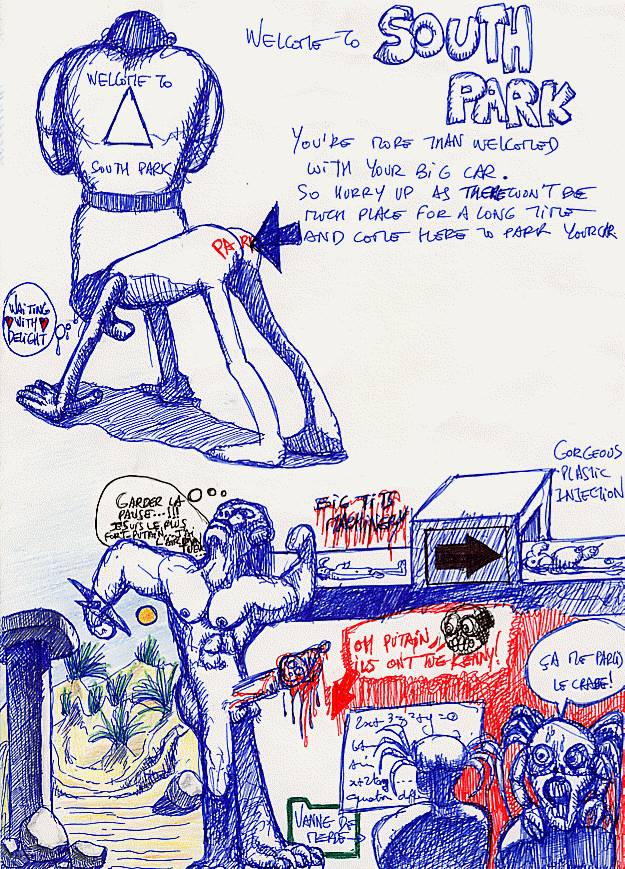 WELCOME TO
SOUTH
PARK
YOU'RE MORE THAN WELCOMED
WITH YOUR BIG CAR.
SO HURRY UP AS THERE WON'T BE
MUCH PLACE FOR A LONG TIME
AND COME HERE TO PARK YOUR CAR
WELCOME TO
SOUTH PARK
PARK
WAITING
WITH
DELIGHT
GORGEOUS
PLASTIC
INJECTION
BIG TITS
MACHINERY
GARDER LA
PAUSE...!!!
JE SUIS LE PLUS
FORT PUTAIN, J'AI
OH PUTAIN,
ILS ONT TUÉ KENNY!
ÇA ME
LE CRANE!
VANNE DE
MERDE